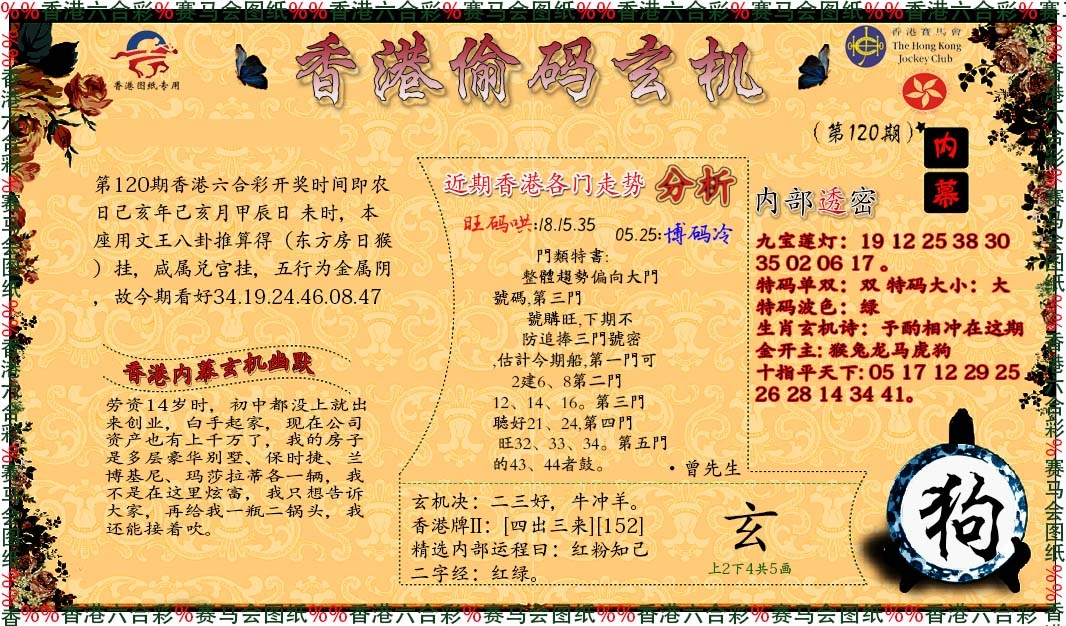 %%香港六合彩%赛马会图纸%%香港六合彩%赛马会图纸%%香港六合彩%赛马会图纸%%香港六合彩%赛
香港图纸专用
香港偷码玄机
香港賽馬會
The Hong Kong
Jockey Club
(第120期)
内
幕
第120期香港六合彩开奖时间即农
日己亥年己亥月甲辰日 未时，本
座用文王八卦推算得（东方房日猴
）挂，咸属兑宫挂，五行为金属阴
，故今期看好34.19.24.46.08.47
香港内幕玄机幽默
劳资14岁时，初中都没上就出
来创业，白手起家，现在公司
资产也有上千万了，我的房子
是多层豪华别墅、保时捷、兰
博基尼、玛莎拉蒂各一辆，我
不是在这里炫富，我只想告诉
大家，再给我一瓶二锅头，我
还能接着吹。
近期香港各门走势 分析
旺码哄:18.15.35
05.25:博码冷
門類特書:
整體趨勢偏向大門
號碼,第三門
號購旺,下期不
防追捧三門號密
,估計今期船,第一門可
2建6、8第二門
12、14、16。第三門
聽好21、24,第四門
旺32、33、34。第五門
的43、44者鼓。
·曾先生
玄机决：二三好，牛冲羊。
香港牌II：[四出三来][152]
精选内部运程曰：红粉知己
二字经：红绿。
玄
上2下4共5画
内部透密
九宝莲灯：19 12 25 38 30
35 02 06 17 。
特码单双：双 特码大小：大
特码波色：绿
生肖玄机诗：予酌相冲在这期
金开主: 猴兔龙马虎狗
十指平天下: 05 17 12 29 25
26 28 14 34 41。
狗
香%%香港六合彩%赛马会图纸%%香港六合彩%赛马会图纸%%香港六合彩%赛马会图纸%%香港六合彩%